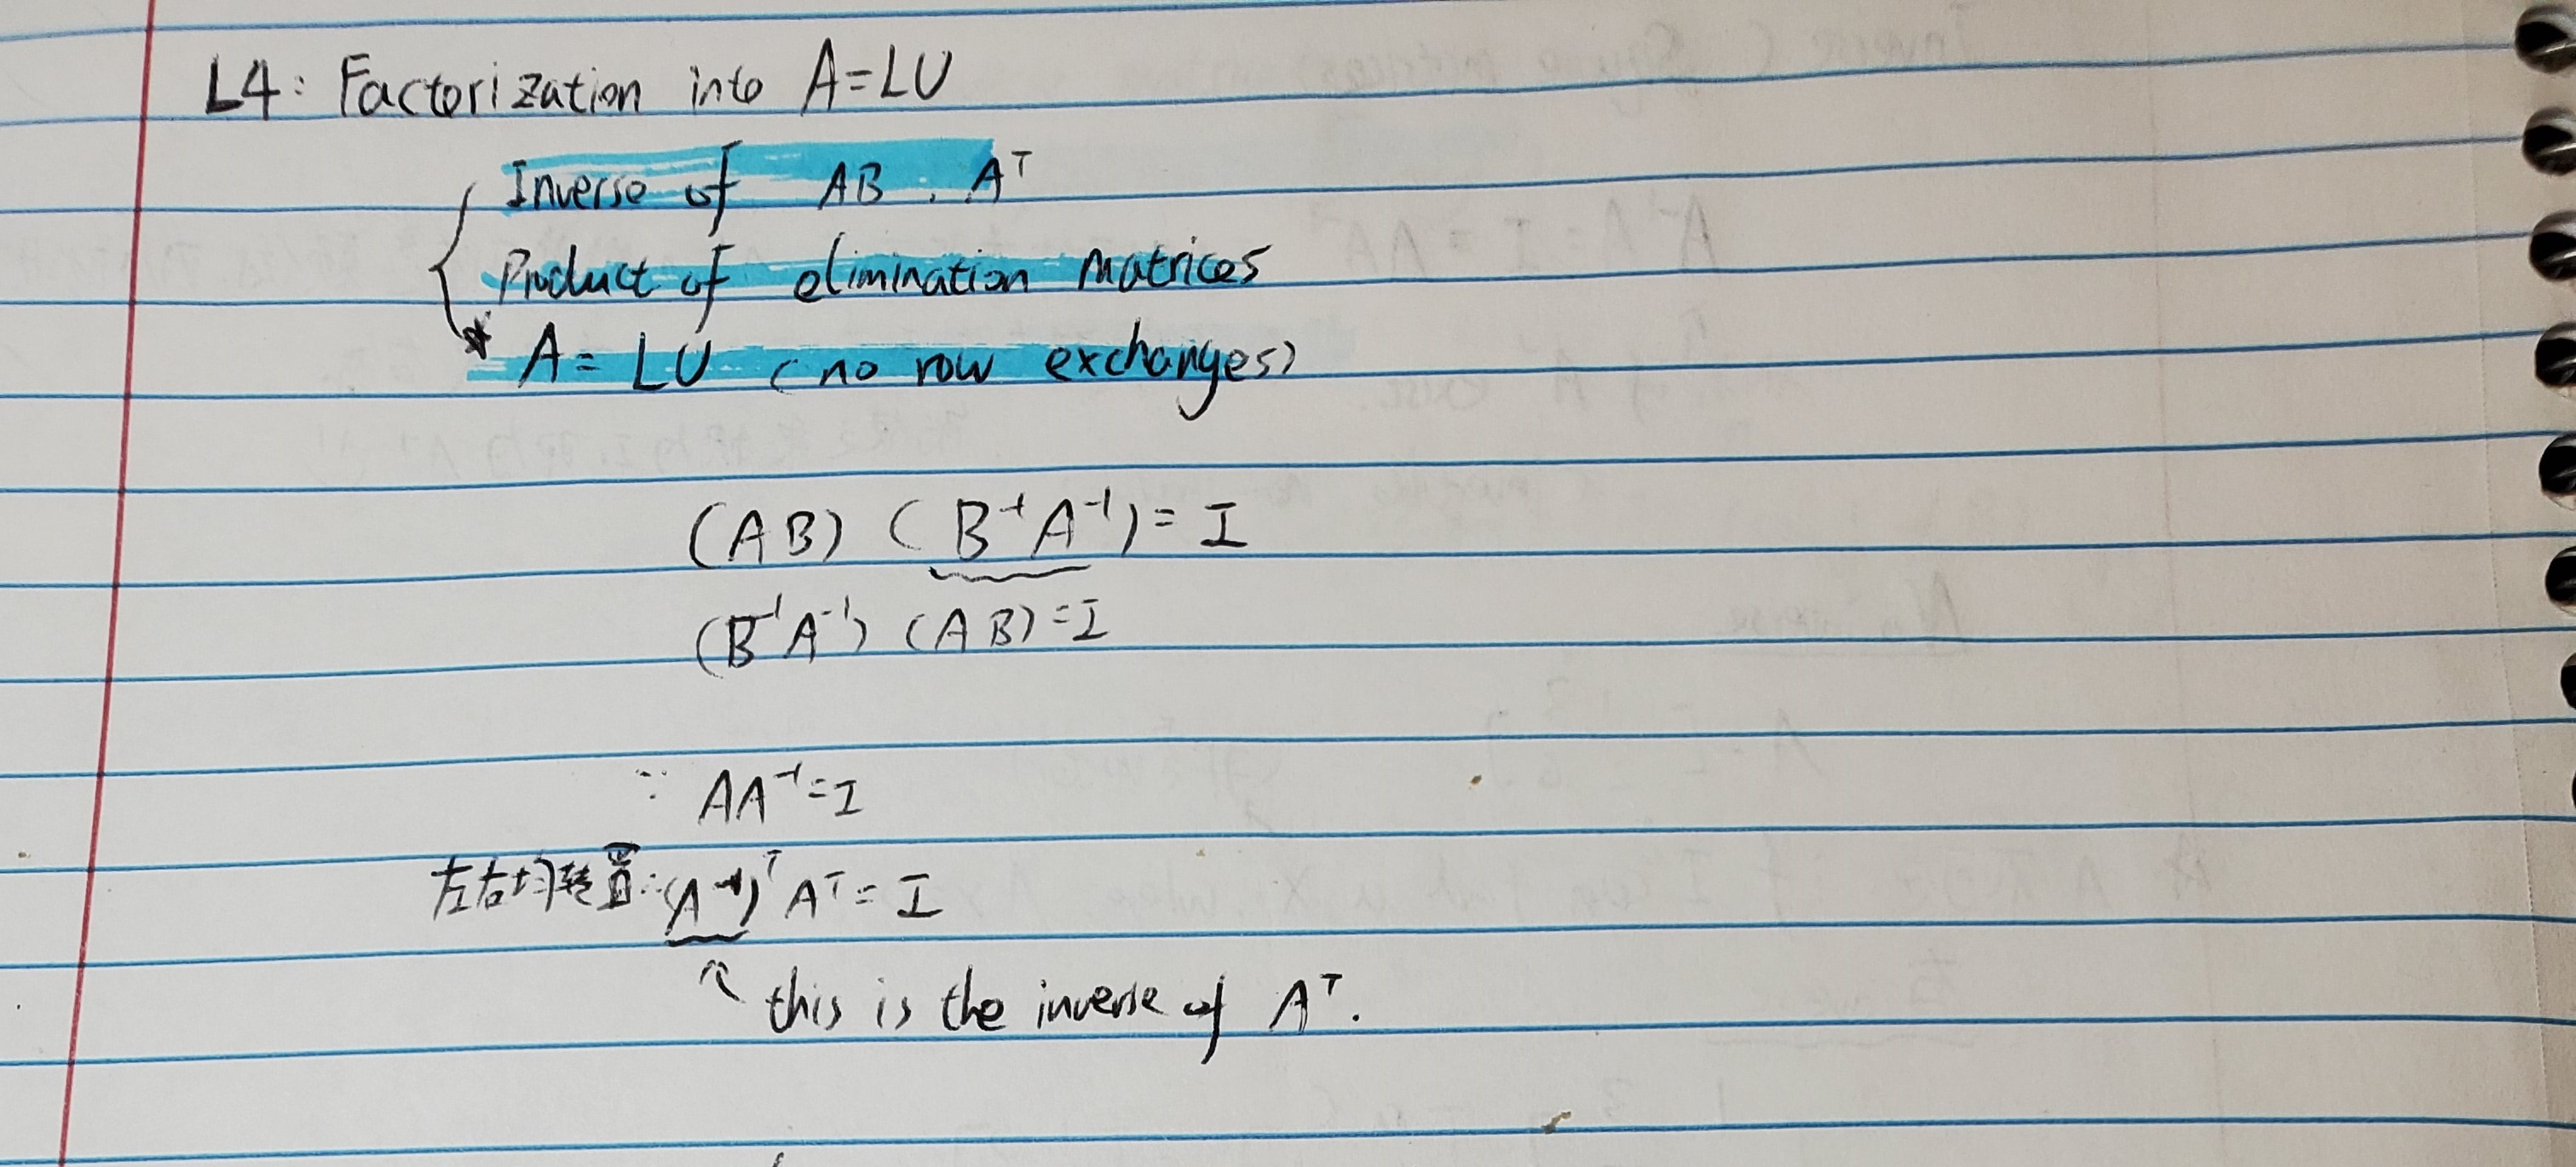 L4: Factorization into A=LU
Inverse of AB . Aᵀ
Product of elimination matrices
* A = LU (no row exchanges)
(AB) (B⁻¹A⁻¹) = I
(B⁻¹A⁻¹) (AB) = I
∵ AA⁻¹ = I
左右均转置: (A⁻¹)ᵀ Aᵀ = I
this is the inverse of Aᵀ.